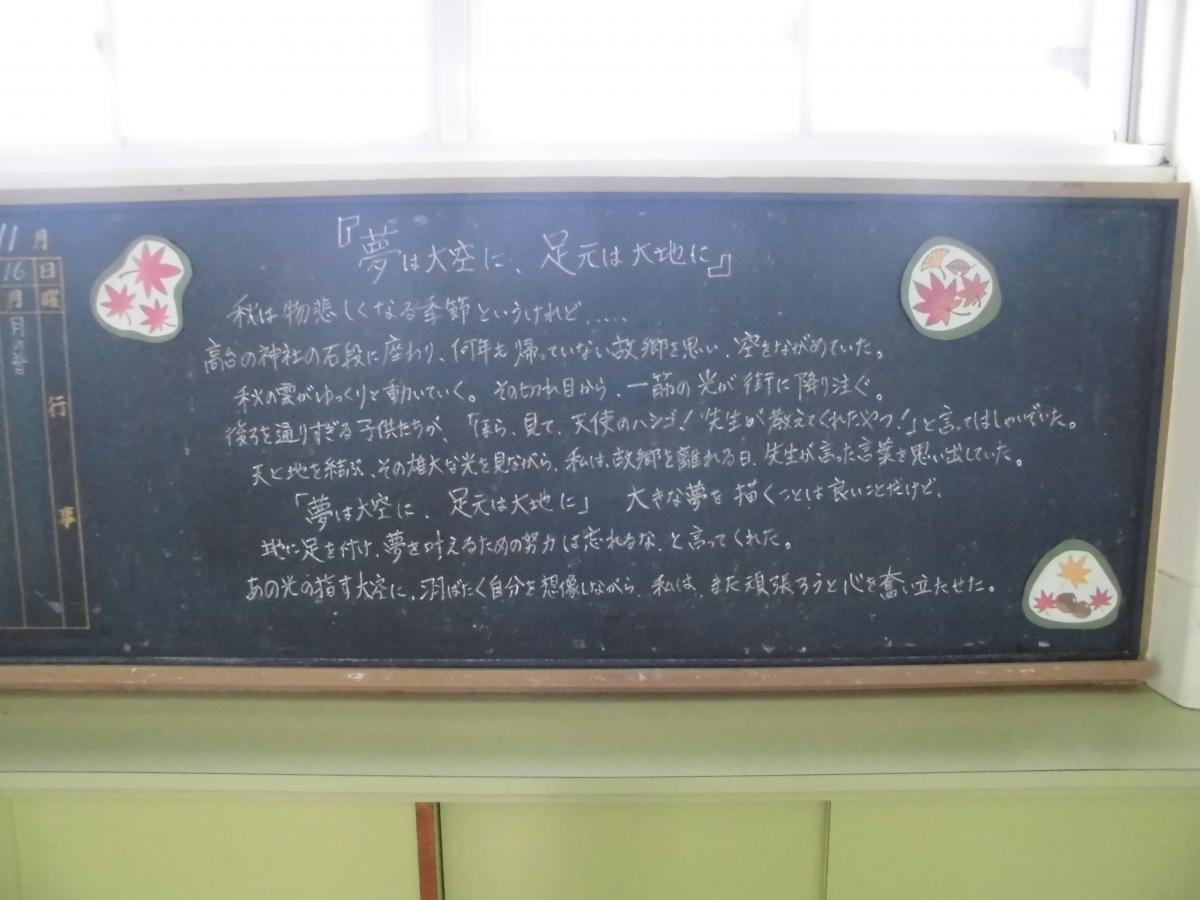 『夢は大空に、足元は大地に』
秋は物悲しくなる季節というけれど‥‥‥
高台の神社の石段に座わり、何年も帰っていない故郷を思い、空をながめていた。
秋の雲がゆっくりと動いていく。その切れ目から、一筋の光が街に降り注ぐ。
後ろを通りすぎる子供たちが、「ほら、見て、天使のハシゴ！先生が教えてくれたやつ！」と言ってはしゃいでいた。
天と地を結ぶ、その雄大な光を見ながら、私は、故郷を離れる日、先生が言った言葉を思い出していた。
「夢は大空に、足元は大地に」 大きな夢を描くことは良いことだけど、
地に足を付け、夢を叶えるための努力は忘れるな、と言ってくれた。
あの光の指す大空に、羽ばたく自分を想像しながら、私は、また頑張ろうと心を奮い立たせた。
11月
16日
月曜
行事